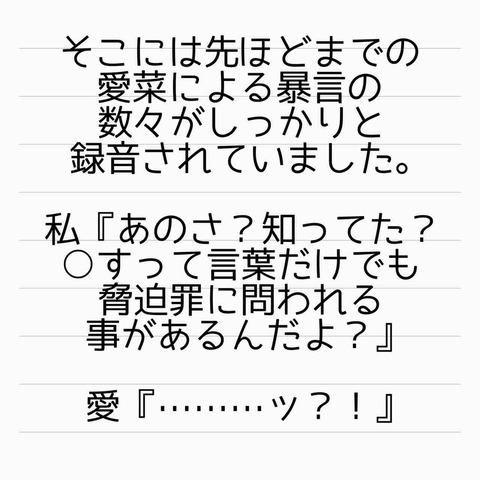 そこには先ほどまでの
愛菜による暴言の
数々がしっかりと
録音されていました。
私『あのさ？知ってた？
○すって言葉だけでも
脅迫罪に問われる
事があるんだよ？』
愛『………ッ？！』